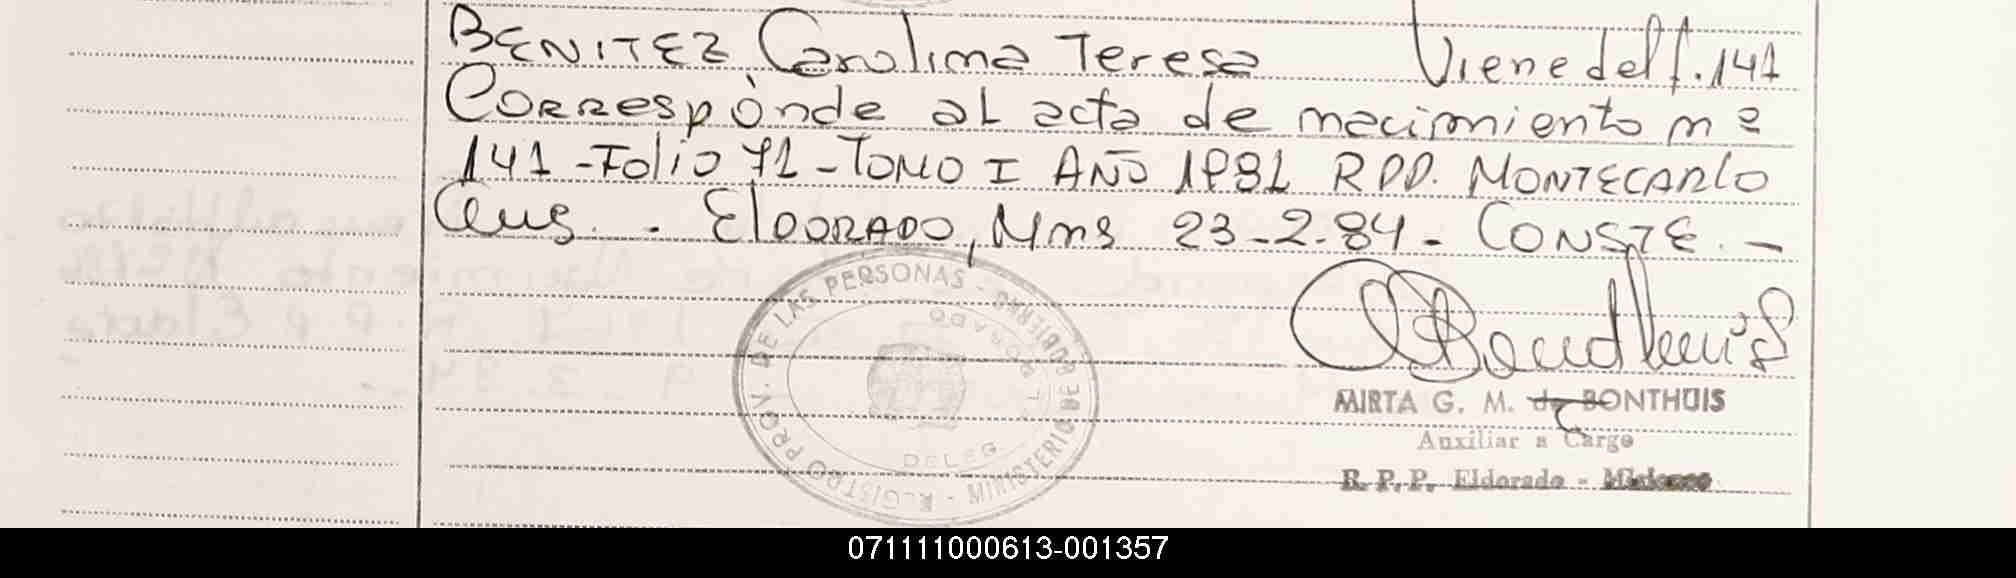 BENITEZ, Carolina Teresa Viene del f. 141
Corresponde al acta de nacimiento nº
141 - Folio 71 - TOMO I AÑO 1981 RPP. MONTECARLO
ELDORADO, Mns 23-2-84 - CONSTE. -
REGISTRO PROV. DE LAS PERSONAS - MINISTERIO DE GOBIERNO
DELEG. ELDORADO
MIRTA G. M. de BONTHUIS
Auxiliar a Cargo
R. P. P. Eldorado - Misiones
071111000613-001357